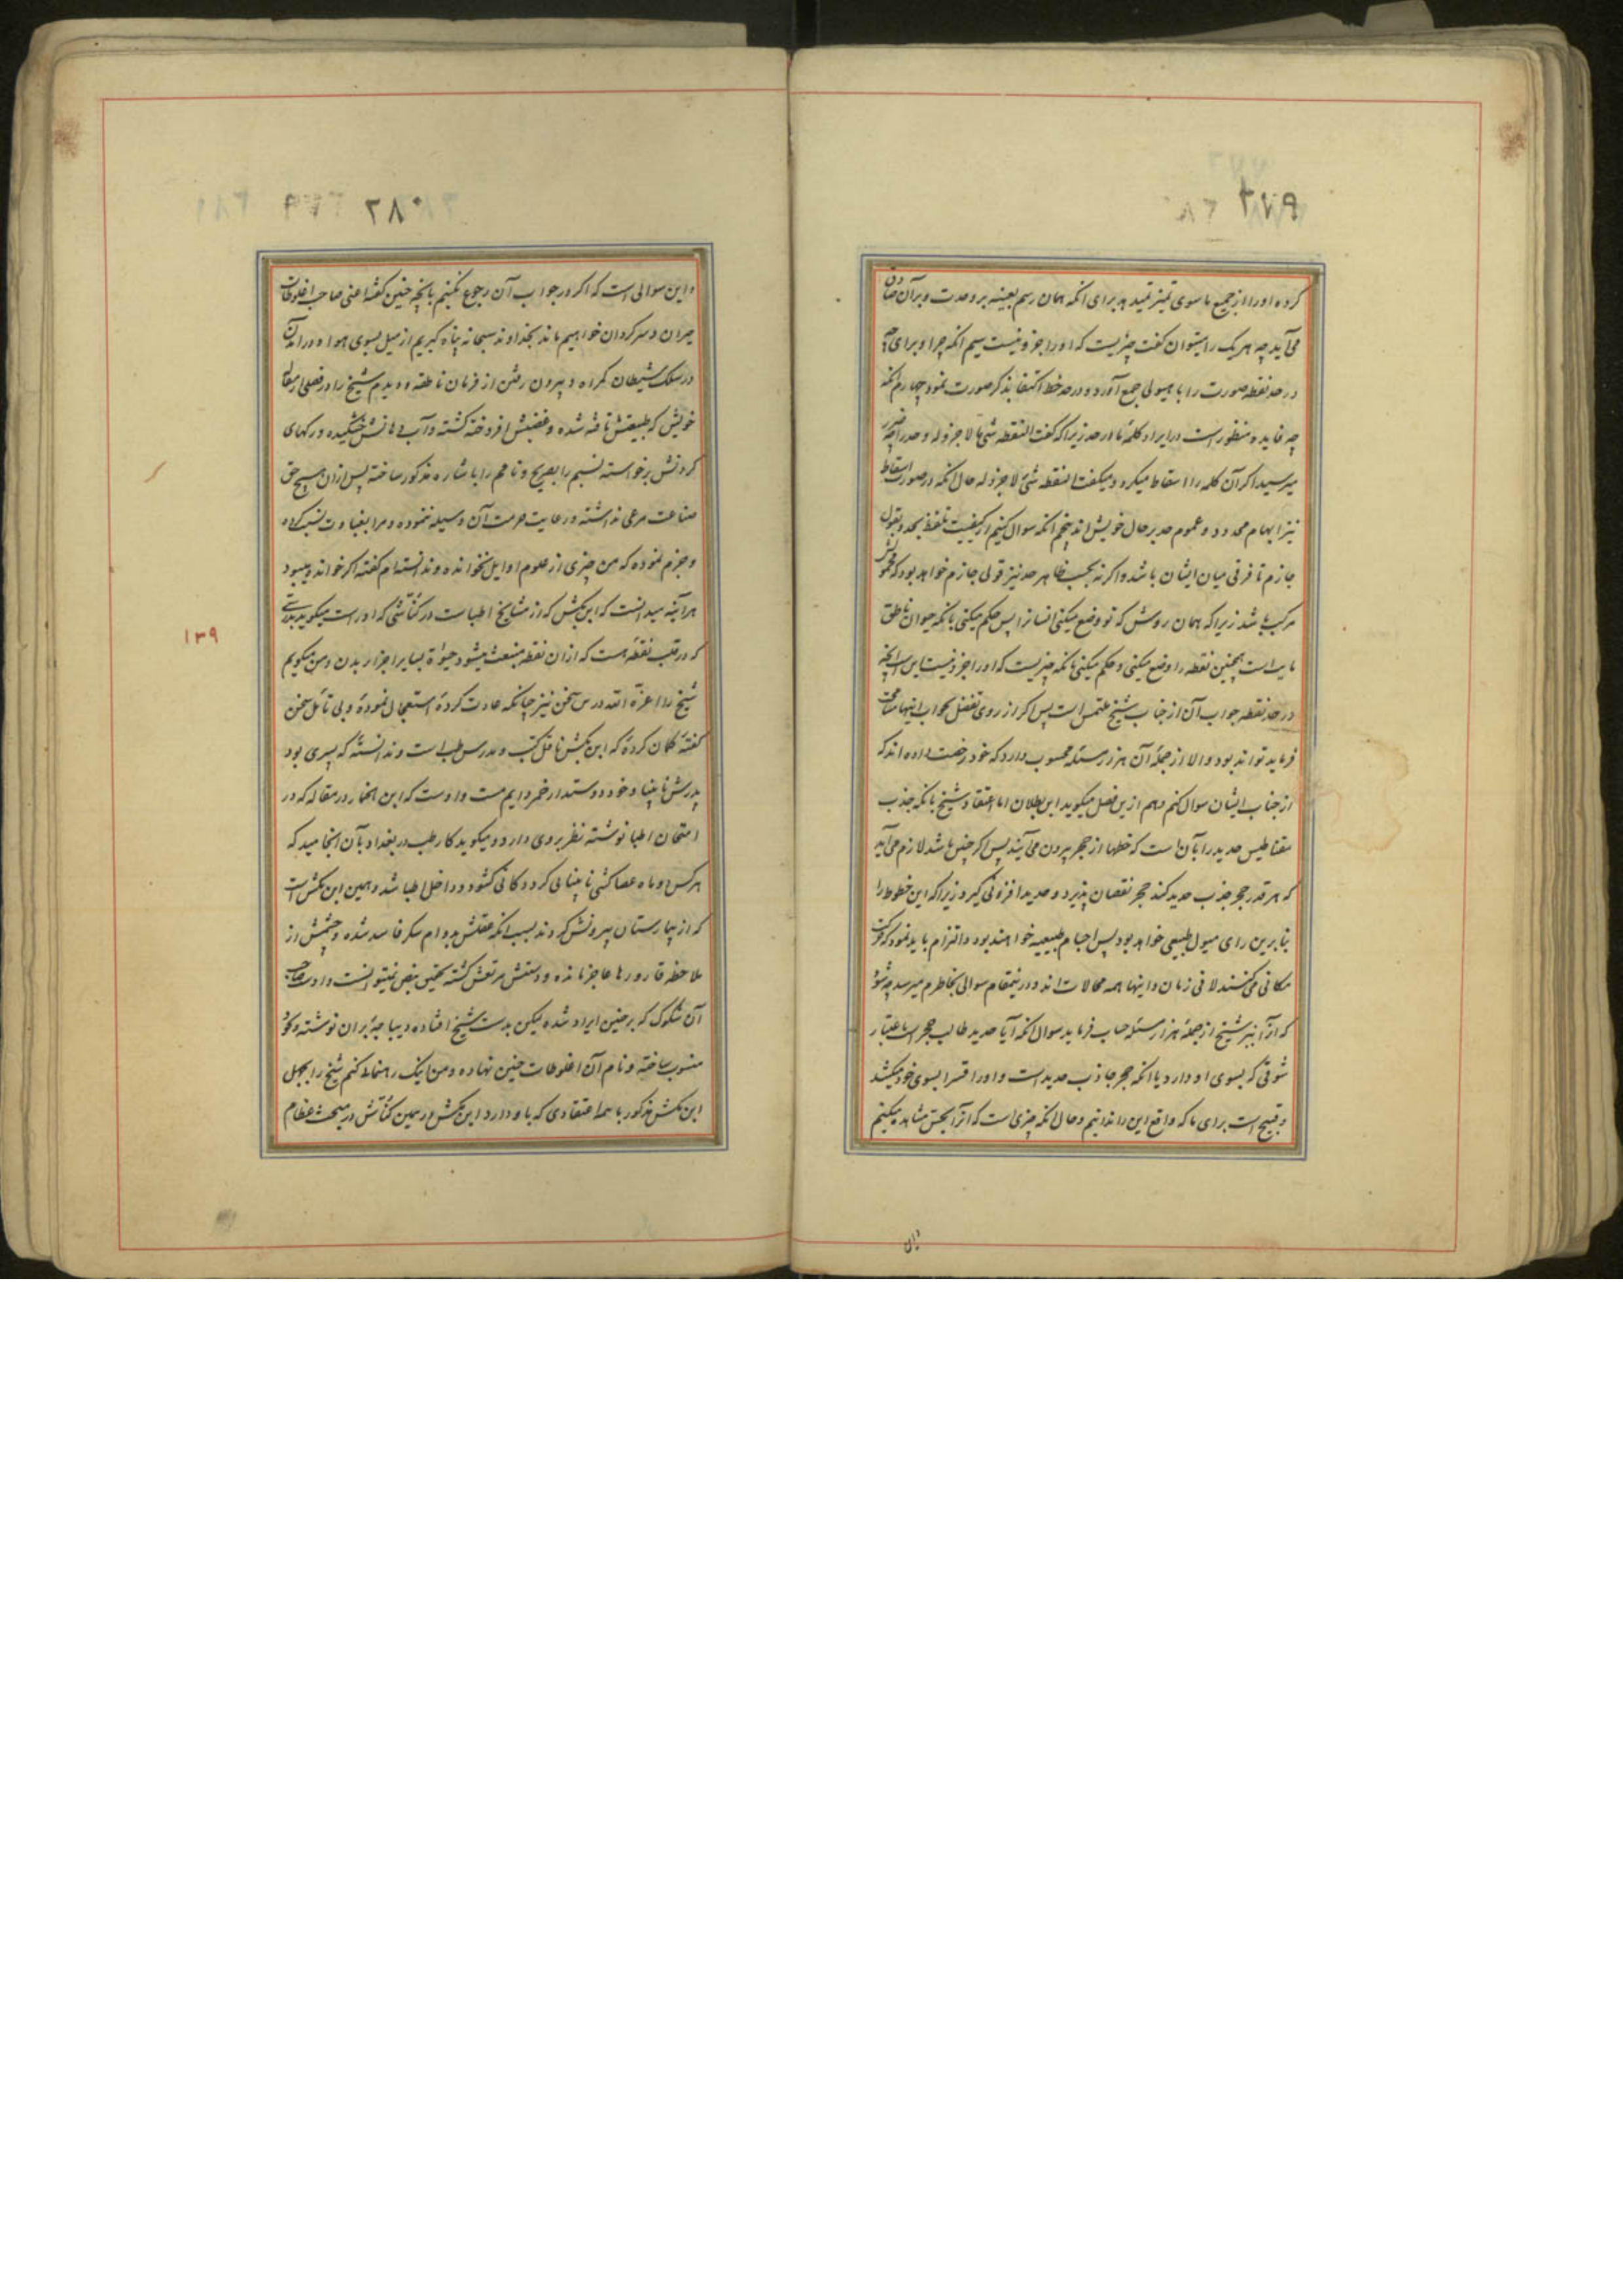 ۲۷۹
کرده اورا از جمیع ماسوی تمیز نمیدهد برای انکه همان رسم بعینه بر وحدت و بر آن صادق
می آید چه هر یک را میتوان کفت چیزیست که اورا جزو نیست سیم انکه چرا و برای چه
در حد نقطه صورت را با هیولی جمع آورد و در حد خط اکتفا بذکر صورت نمود چهارم انکه
چه فایده منظور است در ایراد کلمهٔ ما در حد زیرا که کفت النقطه شئ ما لا جزء له و حد را چه ضرر
میرسید اکر آن کلمه را اسقاط میکرد و میکفت النقطه شئ لا جزء له حال انکه در صورت اسقاط
نیز ابهام محدود و عموم حد بر حال خویش اند پنجم انکه سوال کنیم از کیفیت تلفظ بحد و بقول
جازم تا فرقی میان ایشان باشد و اکرنه بحسب ظاهر حد نیز قولی جازم خواهد بود که محمولش
مرکب باشد زیرا که همان روش که تو وضع میکنی انسانرا پس حکم میکنی بانکه حیوان ناطق
مایت است همچنین نقطه را وضع میکنی و حکم میکنی بانکه چیزیست که اورا جزو نیست این است انچه
در حد نقطه جواب آن از جناب شیخ ملتمس است پس اکر از روی تفضل بجواب اینها مسامحت
فرماید تواند بود والا از جملهٔ آن هزار مسئله محسوب دارد که خود رخصت داده اند که
از جناب ایشان سوال کنم دهم ازین فصل میکوید این بطلان اما اعتقاد شیخ بانکه جذب
مقناطیس حدید را بآن است که خطها از حجر بیرون می آیند پس اکر چنین باشد لازم می آید
که هر قدر حجر جذب حدید کند حجر نقصان پذیرد و حدید افزونی کیرد زیرا که این خطوط را
بنابرین رای میول طبیعی خواهد بود پس اجسام طبیعیه خواهند بود و التزام باید نمود که حرکت
مکانی می کنند لا فی زمان و اینها همه محالات اند و درینمقام سوالی بخاطرم میرسد چه شود
که آنرا نیز شیخ از جملهٔ هزار مسئله حساب فرماید سوال انکه آیا حدید طالب حجر است باعتبار
شوقی که بسوی او دارد یا انکه حجر جاذب حدید است و اورا قسرا بسوی خود میکشد
و قبیح است برای ما که واقع این را ندانیم و حال انکه چیزی است که آنرا بحس مشاهده میکنیم
۲۸۰
و این سوالی است که اکر در جواب آن رجوع نکنیم بانچه حنین کفته اعنی صاحب اغلوطات
حیران و سرکردان خواهیم ماند بخداوند سبحانه پناه کیریم از میل بسوی هوا و در آمدن
در سلک شیطان کمراه و بیرون رفتن از فرمان ناطقه و دیدم شیخ را در فصلی از مقاله
خویش که طبیعتش تافته شده و غضبش افروخته کشته و آب دهانش خشکیده و رکهای
کردنش برخواسته نسیم را بصریح و نامحم را باشاره مذکور ساخته پس ازان هیچ حق
صناعت مرعی نداشته و رعایت حرمت آن وسیله ننموده و مرا بغباوت نسبت کرده
و جزم نموده که من چیزی از علوم اوایل نخوانده و ندانسته ام کفته اکر خوانده میبود
هر آینه میدانست که ابن بکش که از مشایخ اطباست در کنّاشی که اوراست میکوید بدرستی
که در قلب نقطه هست که ازان نقطه منبعث میشود حیوة بسایر اجزاء بدن و من میکویم
شیخ ادا عزه الله درس سخن نیز چنانکه عادت کردهٔ استعجال نمودهٔ و بی تامل سخن
کفتهٔ کمان کردهٔ که ابن بکش ناقل کتب و مدرس طب است و ندانستهٔ که پسری بود
پدرش نابینا و خود دوستدار خمر دایم مست و اوست که ابن الخمار در مقاله که در
امتحان اطبا نوشته نظر بروی دارد و میکوید کار طب در بغداد بآن انجامید که
هر کس دو ماه عصا کشی نابینائی کرد دکانی کشود و داخل اطبا شد و همین ابن بکش است
که از بیمارستان بیرونش کردند بسبب انکه عقلش بدوام سکر فاسد شده و چشمش از
ملاحظه قارورها عاجز مانده و دستش مرتعش کشته تحقیق نبض نمیتوانست و اوست صاحب
آن شکوک که بر حنین ایراد شده لیکن بدست شیخ افتاده دیباجهٔ بران نوشته و بخود
منسوب ساخته و نام آن اغلوطات حنین نهاده و من اینک رهنمائی کنم شیخ را بجهل
ابن بکش مذکور با همه اعتقادی که باو دارد ابن بکش در همین کنّاش در مبحث عظام
۱۳۹